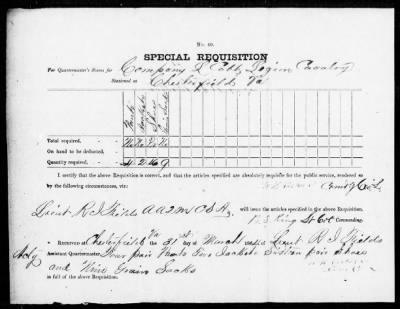 No. 40.
SPECIAL REQUISITION
For Quartermaster's Stores for Company L Cobb Legion Cavalry
Stationed at Chesterfield Va
Pants Jackets Shoes Grain Sacks
Total required,
On hand to be deducted,
Quantity required, 4 2 16 9
I certify that the above Requisition is correct, and that the articles specified are absolutely requisite for the public service, rendered so
by the following circumstances, viz: Comdg Co L
Lieut R J Fields A A Q M C S A, will issue the articles specified in the above requisition.
Lt Col Commanding.
Received at Chesterfield Va the 31st day of March of Lieut R J Fields
Actg Assistant Quartermaster, Four pair Pants Two Jackets Sixteen pair Shoes
and Nine Grain Sacks
in full of the above Requisition.